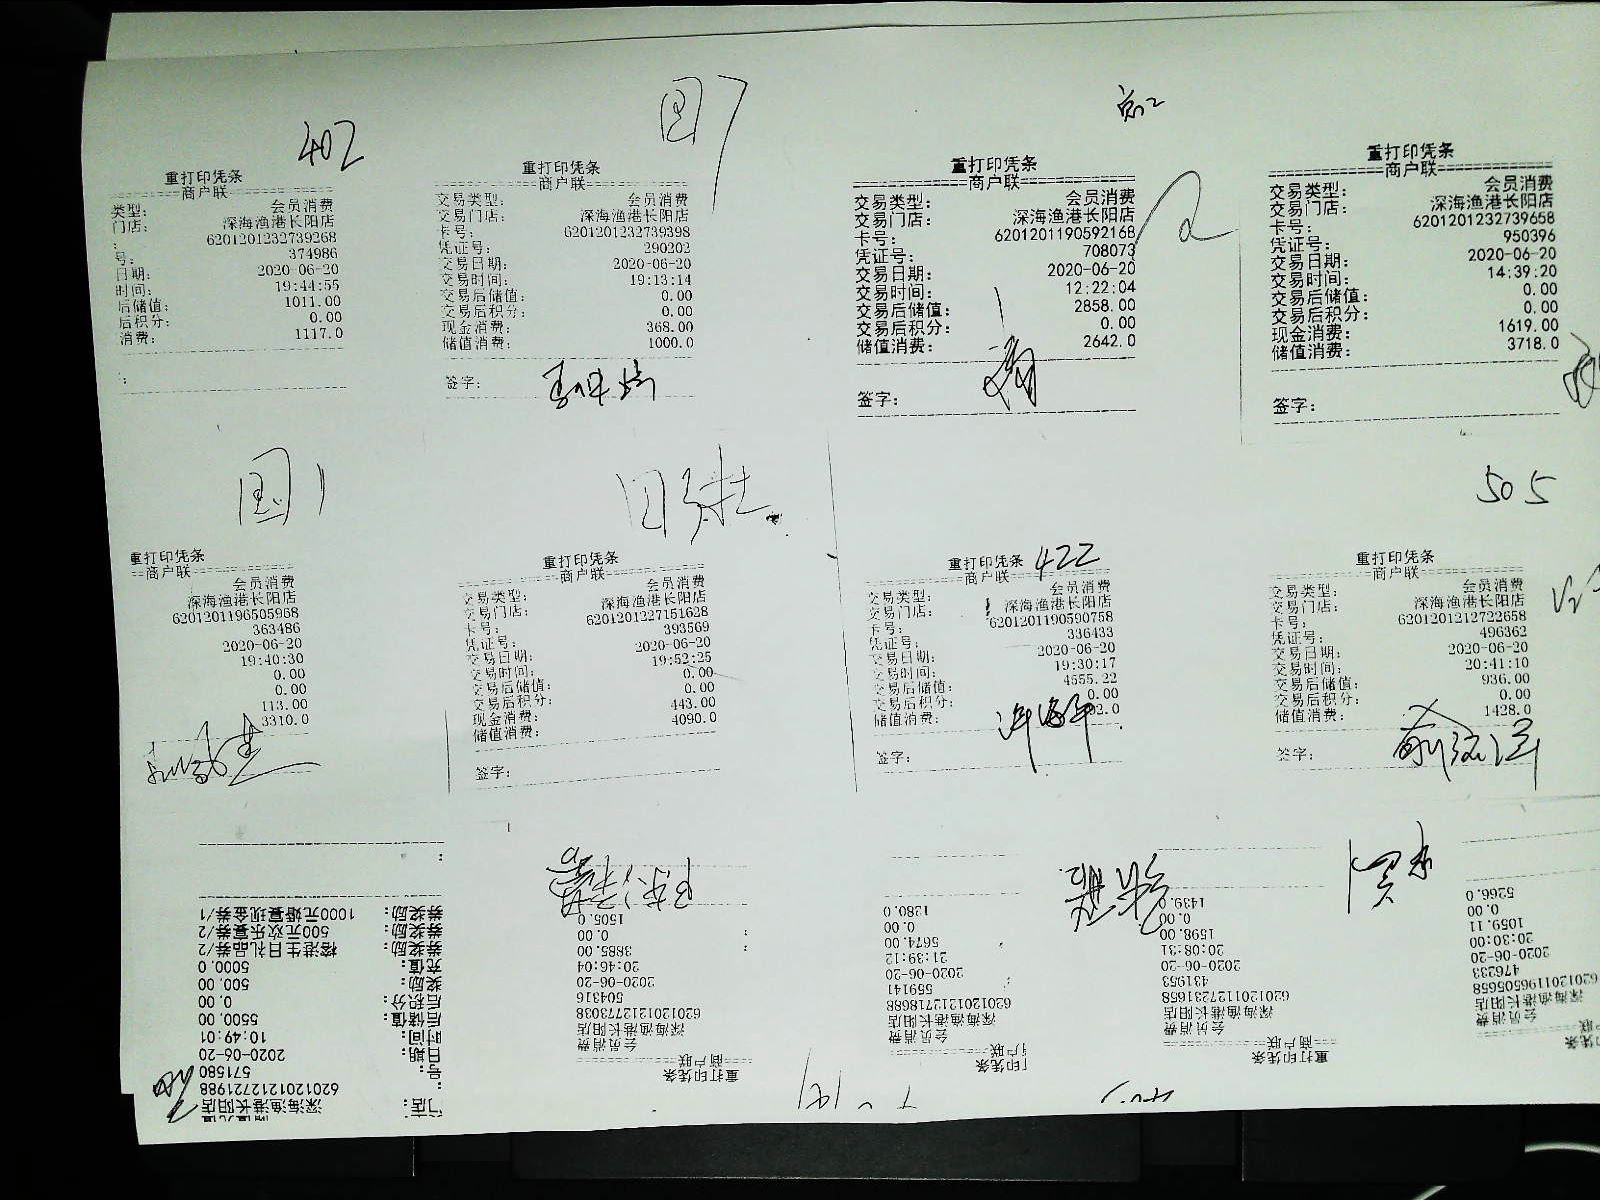 402
重打印凭条
商户联
类型: 会员消费
门店: 深海渔港长阳店
: 6201201232739268
号: 374986
日期: 2020-06-20
时间: 19:44:55
后储值: 1011.00
后积分: 0.00
消费: 1117.0
:
团7
重打印凭条
商户联
交易类型: 会员消费
交易门店: 深海渔港长阳店
卡号: 6201201232739398
凭证号: 290202
交易日期: 2020-06-20
交易时间: 19:13:14
交易后储值: 0.00
交易后积分: 0.00
现金消费: 368.00
储值消费: 1000.0
签字:
重打印凭条
商户联
交易类型: 会员消费
交易门店: 深海渔港长阳店
卡号: 6201201190592168
凭证号: 708073
交易日期: 2020-06-20
交易时间: 12:22:04
交易后储值: 2858.00
交易后积分: 0.00
储值消费: 2642.0
签字:
重打印凭条
商户联
交易类型: 会员消费
交易门店: 深海渔港长阳店
卡号: 6201201232739658
凭证号: 950396
交易日期: 2020-06-20
交易时间: 14:39:20
交易后储值: 0.00
交易后积分: 0.00
现金消费: 1619.00
储值消费: 3718.0
签字:
重打印凭条
商户联
会员消费
深海渔港长阳店
6201201196505968
363486
2020-06-20
19:40:30
0.00
0.00
113.00
3310.0
重打印凭条
商户联
交易类型: 会员消费
交易门店: 深海渔港长阳店
卡号: 6201201227151628
凭证号: 393569
交易日期: 2020-06-20
交易时间: 19:52:25
交易后储值: 0.00
交易后积分: 0.00
现金消费: 443.00
储值消费: 4090.0
签字:
422
重打印凭条
商户联
交易类型: 会员消费
交易门店: 深海渔港长阳店
卡号: 6201201190590758
凭证号: 336433
交易日期: 2020-06-20
交易时间: 19:30:17
交易后储值: 4555.22
交易后积分: 0.00
储值消费: 02.0
签字: 许海平
505
重打印凭条
商户联
交易类型: 会员消费
交易门店: 深海渔港长阳店
卡号: 6201201212722658
凭证号: 496362
交易日期: 2020-06-20
交易时间: 20:41:10
交易后储值: 936.00
交易后积分: 0.00
储值消费: 1428.0
签字:
门店: 深海渔港长阳店
: 6201201212721988
号: 571580
日期: 2020-06-20
时间: 10:49:01
后储值: 5500.00
后积分: 0.00
奖励: 500.00
充值: 5000.0
券奖励: 榕港生日礼品券/2
券奖励: 500元欢乐宴券/2
券奖励: 1000元婚宴现金券/1
:
重打印凭条
商户联
会员消费
深海渔港长阳店
6201201212773038
504316
2020-06-20
20:46:04
3885.00
0.00
1505.0
打印凭条
户联
会员消费
深海渔港长阳店
6201201212718688
559141
2020-06-20
21:39:12
5674.00
0.00
1280.0
重打印凭条
商户联
会员消费
深海渔港长阳店
6201201127231658
431953
2020-06-20
20:08:31
1598.00
0.00
1439.0
凭条
联
会员消费
深海渔港长阳店
6201201196505658
476233
2020-06-20
20:30:00
1059.11
0.00
5266.0